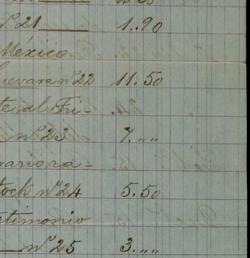 nº 21 1.90
México
Guevara nº 22 11.50
te al Tri-
nº 23 7.,,
variora-
tock nº 24 5.50
stimonio
nº 25 3.,,